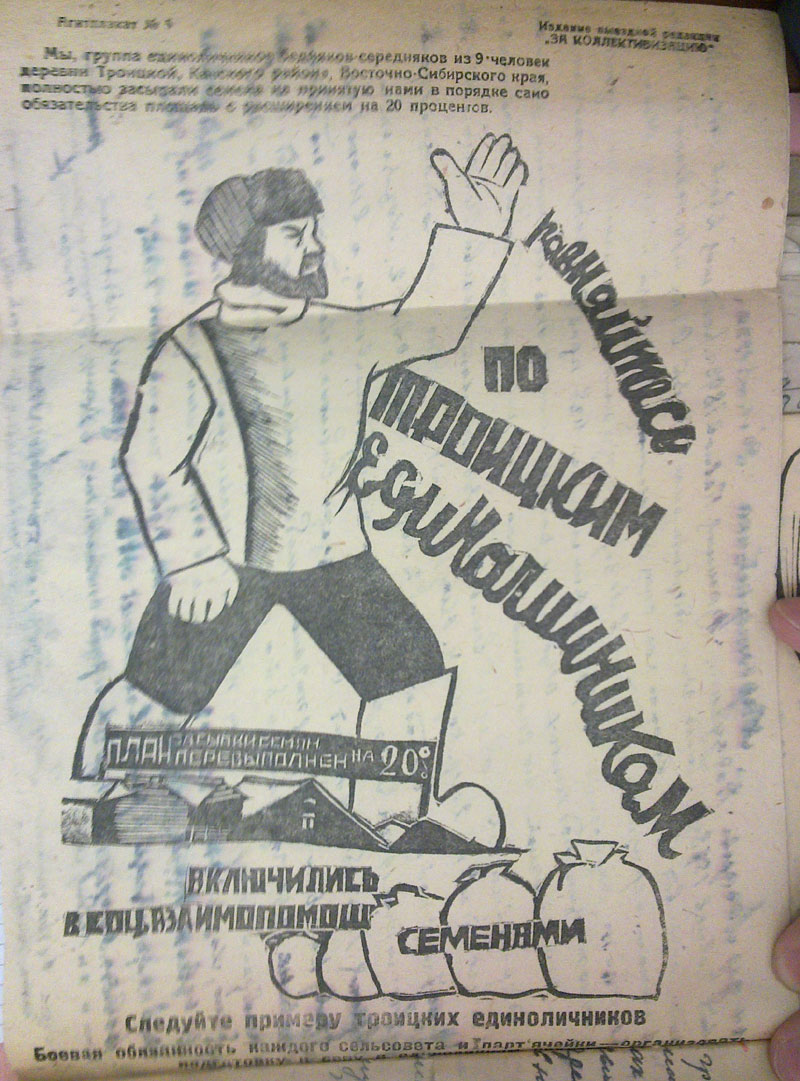 Агитплакат № 9
Издание выездной редакции
„ЗА КОЛЛЕКТИВИЗАЦИЮ“
Мы, группа единоличников бедняков-середняков из 9 человек
деревни Троицкой, Канского района, Восточно-Сибирского края,
полностью засыпали семена на принятую нами в порядке само
обязательства площадь с расширением на 20 процентов.
равняйтесь
по
троицким
единоличникам
ПЛАН ЗАСЫПКИ СЕМЯН
ПЕРЕВЫПОЛНЕН НА 20%
ВКЛЮЧИЛИСЬ
В СОЦВЗАИМОПОМОЩ
СЕМЕНАМИ
Следуйте примеру троицких единоличников
Боевая обязанность каждого сельсовета и парт'ячейки—организовать
подготовку к севу